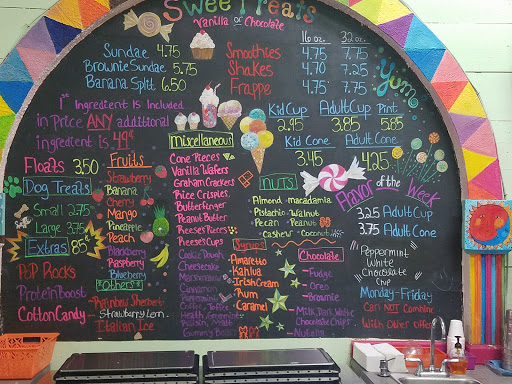 Sweet Treats
Vanilla or Chocolate
Sundae 4.75
Brownie Sundae 5.75
Banana Split 6.50
16 oz. 32 oz.
Smoothies 4.75 7.75
Shakes 4.70 7.25
Frappe 4.75 7.75
Yum
1st Ingredient Is Included
in Price ANY additional
ingredient is 49¢
Kid Cup Adult Cup Pint
2.95 3.85 5.85
Kid Cone Adult Cone
3.45 4.25
Floats 3.50
Dog Treats
Small 2.75
Large 3.75
Extras 85¢
Pop Rocks
Protein Boost
Cotton Candy
Fruits
Strawberry
Banana
Cherry
Mango
Pineapple
Peach
Blackberry
Raspberry
Blueberry
Others
Rainbow Sherbet
Strawberry Lem.
Italian Ice
Miscellaneous
Cone Pieces
Vanilla Wafers
Graham Crackers
Rice Crispies
Butterfinger
Peanut Butter
Reese's Pieces
Reese's Cups
Cookie Dough
Cheesecake
Marshmallow
Cinnamon
Peppermint
Coffee Toffee
Gummy Bears
Nuts
Almond macadamia
Pistachio Walnut
Pecan Peanut
Cashew Coconut
Syrups
Amaretto
Kahlua
Irish Cream
Rum
Caramel
Chocolate
-Fudge
-Oreo
-Brownie
-Milk, Dark, White
Chocolate Chips
-Nutella
Flavor of the Week
3.25 Adult Cup
3.75 Adult Cone
Peppermint
White
Chocolate
Chip
Monday-Friday
Can NOT Combine
With Other Offer